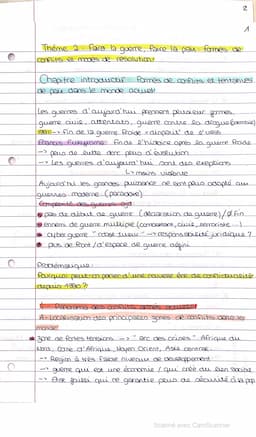 2
1
Thème 2 Faire la guerre, faire la paix : formes de
conflits et modes de résolution
Chapitre introductif Formes de conflits et tentatives
de paix dans le monde actuel
Les guerres d'aujourd'hui prennent plusieurs formes,
guerre civile, attentats, guerre contre la drogue
-> fin de la guerre froide
Francis Fukuyama Fin de l'histoire après la guerre froide
-> plus de lutte donc plus d'évolution
-> Les guerres d'aujourd'hui sont des exceptions
moins violente
Aujourd'hui les grandes puissance ne sont plus adapté aux
guerres moderne (paradoxe)
Complexité des guerres
pas de début de guerre (déclaration de guerre) / Fin
ennemis de guerre multiple (combattant, civil, terroriste)
cyber guerre -> responsabilité juridique ?
plus de front / d'espace de guerre défini
Problématique :
Pourquoi peut-on parler d'une nouvelle ère de conflictualité
depuis 1990 ?
I Panorama des conflits armés actuels
A - Localisation des principales zones de conflits dans le
monde
zone de fortes tensions -> "arc des crises" Afrique du
Nord, Corne d'Afrique, Moyen Orient, Asie centrale.
-> Région à très faible niveau de développement
-> guerre qui est une économie / qui crée du lien social
-> État faible qui ne garantie pas de sécurité à la pop
Scanné avec CamScanner